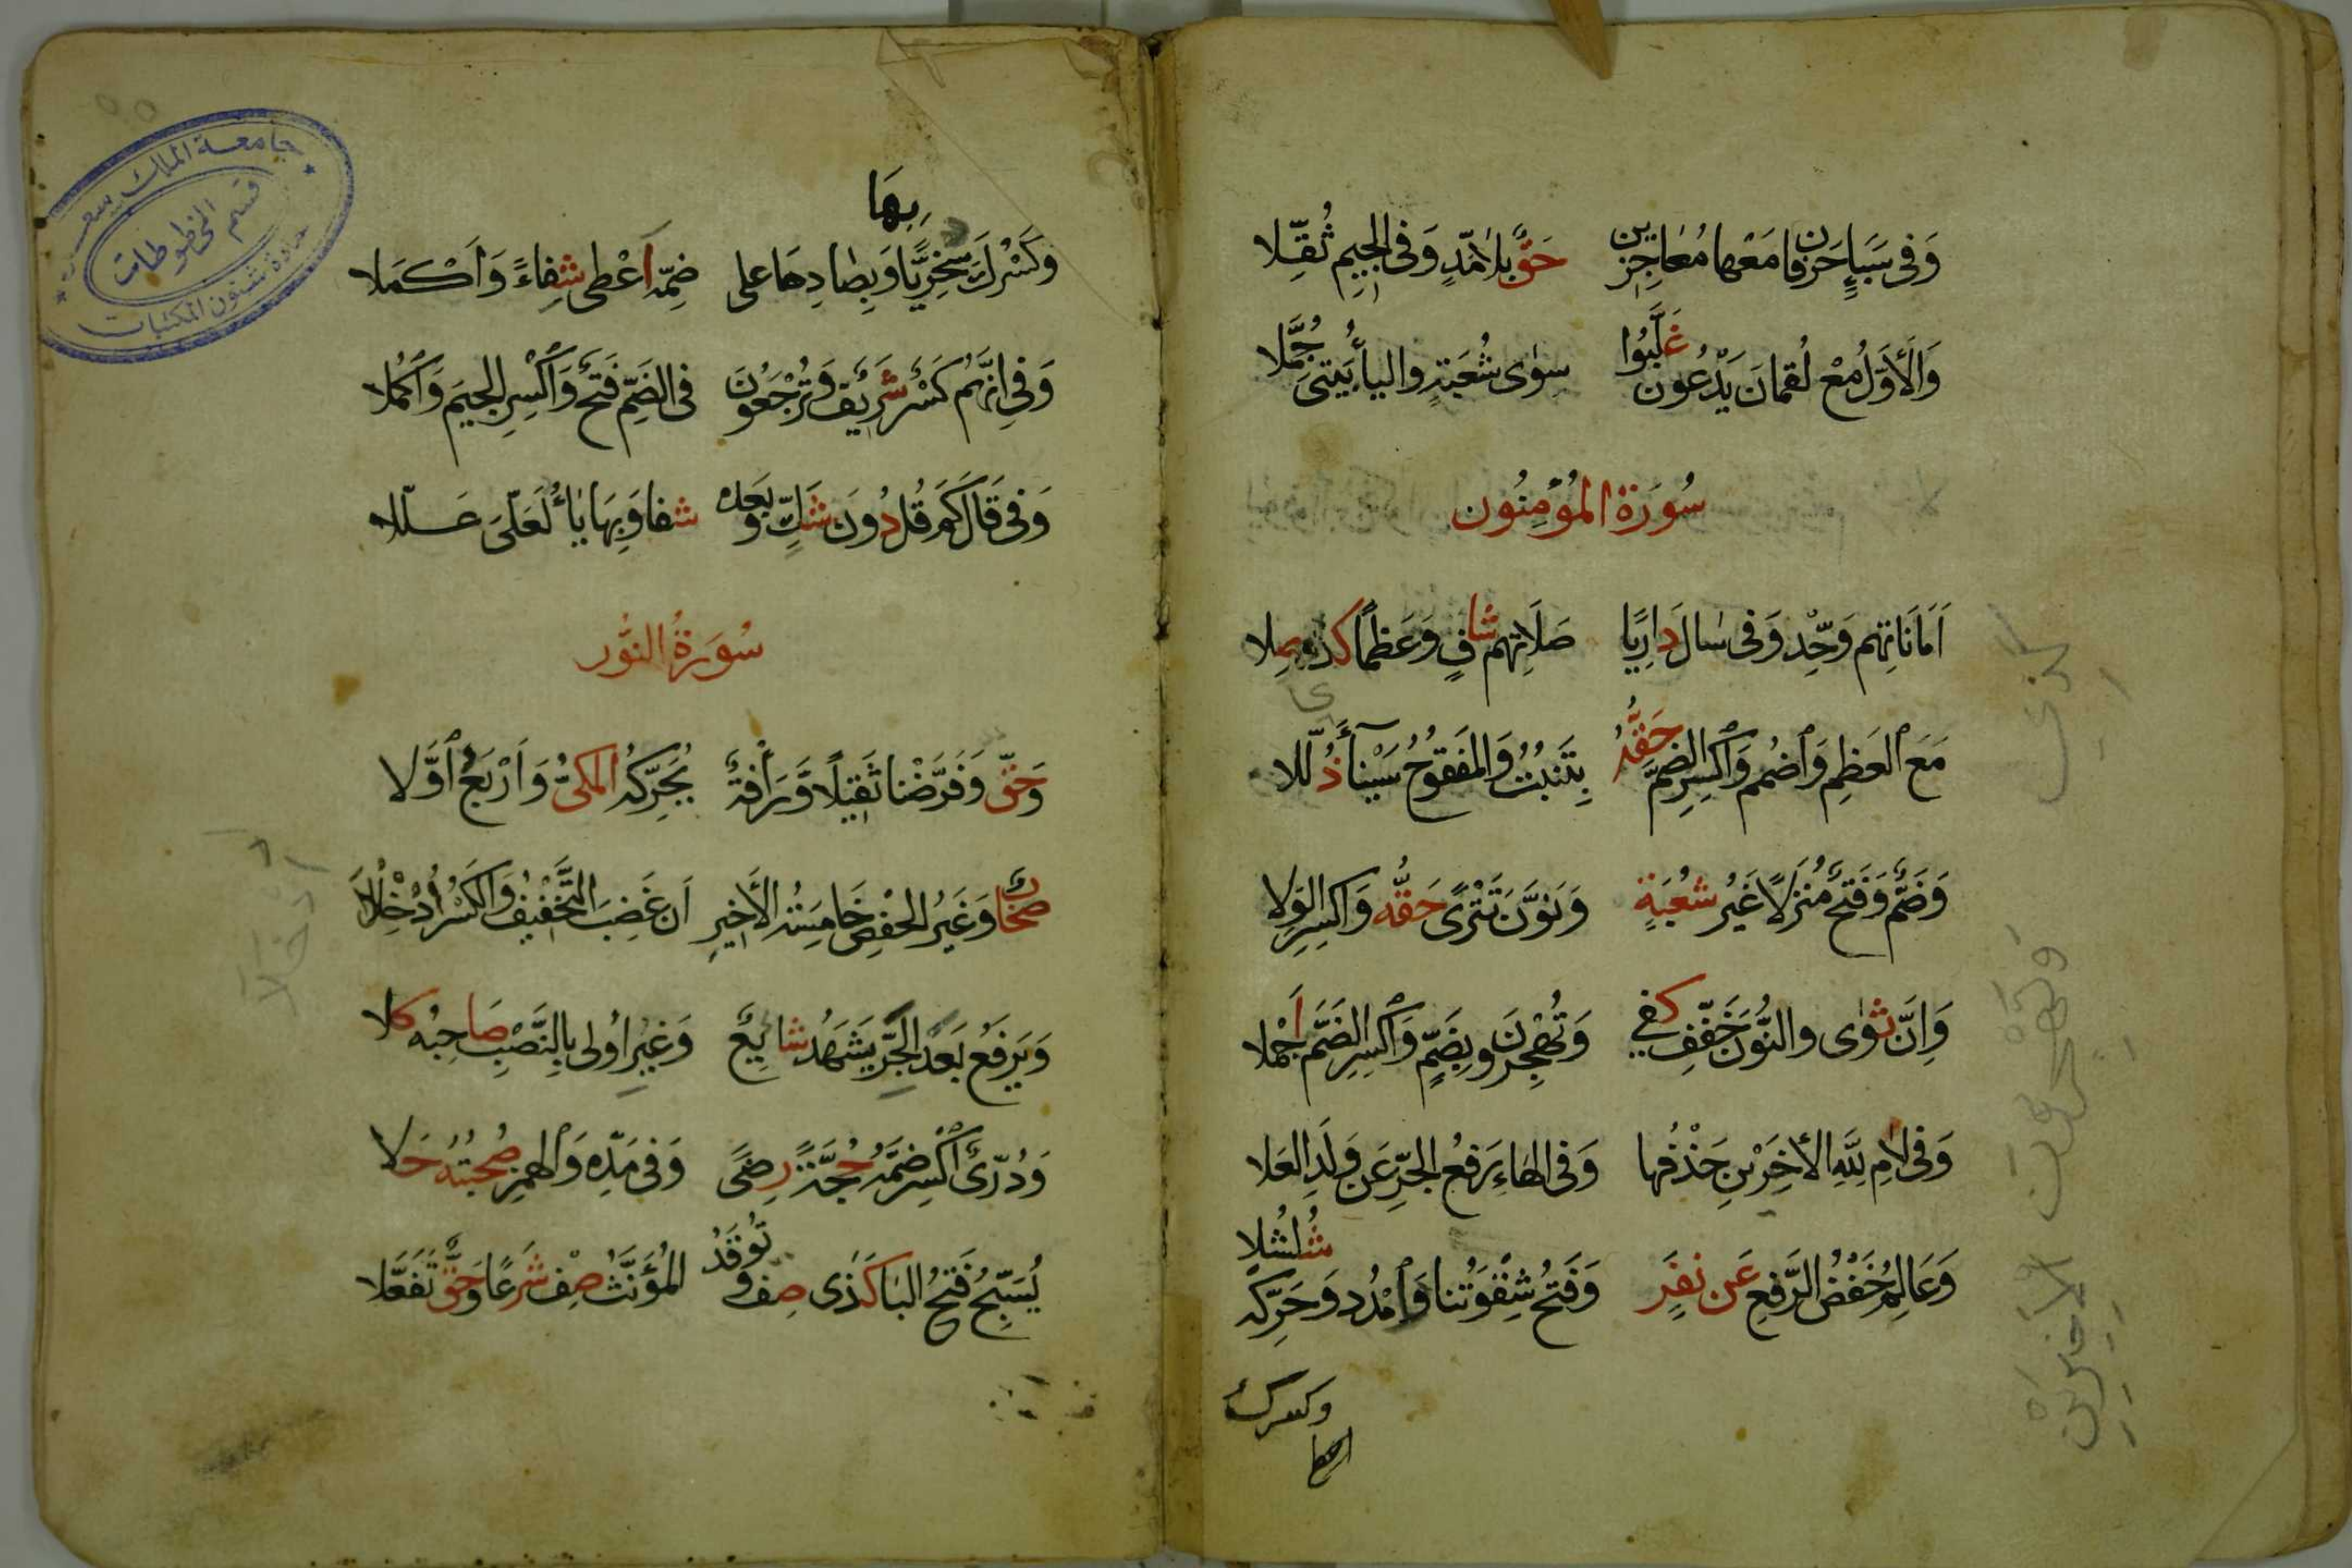 وَفِى سَبَإٍ حَرْفَانِ مَعْهَا مُعَاجِزِينَ حَقٌّ بِلَامَدٍّ وَفِى الْجِيمِ ثُقِّلَا
وَالْأَوَّلُ مَعْ لُقْمَانَ يَدْعُونَ غَلَّبُوا سِوَى شُعْبَةٍ وَالْيَاءُ بَيْتِىَ جُمَّلَا
سُورَةُ الْمُؤْمِنُون
أَمَانَاتِهِم وَحِّدْ وَفِى سَالَ دَارِيًا صَلَاتِهِم شَافٍ وَعَظْمًا كَذِى صِلَا
مَعَ الْعَظْمِ وَاضْمُمْ وَاكْسِرِ الضَّمَّ حَقُّهُ بِتَنْبُتُ وَالْمَفْتُوحُ سَيْنَاءَ ذُلِّلَا
وَضَمٌّ وَفَتْحٌ مُنْزَلًا غَيْرُ شُعْبَةٍ وَنَوَّنَ تَتْرًى حَقُّهُ وَاكْسِرِ الْوِلَا
وَاِنَّ ثَوَى وَالنُّونَ خَفِّفْ كَفَى وَتُهْجِرُونَ بِضَمٍّ وَاكْسِرِ الضَّمَّ أَجْمَلَا
وَفِى لَامِ لِلَّهِ الْأَخِيرَيْنِ حَذْفُهَا وَفِى الْهَاءِ رَفْعُ الْجَرِّ عَنْ وَلَدِ الْعَلَا
وَعَالِمِ خَفْضُ الرَّفْعِ عَنْ نَفَرٍ وَفَتْحُ شِقْوَتُنَا وَامْدُدْ وَحَرِّكْهُ شُلْشُلَا
وكسرك
كذى
وتهجرون
الأخيرين
وَكَسْرُكَ سُخْرِيًّا بِهَا وَبِصَادِهَا عَلَى ضَمِّهِ أَعْطَى شِفَاءً وَأَكْمَلَا
وَفِى اِنَّهُم كَسْرٌ شَرِيفٌ وَتُرْجَعُونَ فِى الضَّمِّ فَتْحٌ وَاكْسِرِ الْجِيمَ وَاكْمُلَا
وَفِى قَالَ كَمْ قُل دُونَ شَكٍّ وَبَعْدَهُ شَفَا وَبِهَا يَاءٌ لَعَلِّىَ عَلَّلَا
سُورَةُ النُّور
وَحَقٌّ وَفَرَّضْنَا ثَقِيلًا وَرَأْفَةٌ يُحَرِّكُهُ الْمَكِّىُّ وَأَرْبَعُ أَوَّلَا
صِحَابٌ وَغَيْرُ الْحَفْصِ خَامِسَةُ الْأَخِيرِ أَنْ غَضِبَ التَّخْفِيفُ وَالْكَسْرُ أُدْخِلَا
وَيَرْفَعُ بَعْدُ الْجَرَّ يَشْهَدُ شَائِعٌ وَغَيْرِ أُولِى بِالنَّصْبِ صَاحِبُهُ كَلَا
وَدُرِّىٌّ اكْسِرْ ضَمَّهُ حُجَّةً رِضًى وَفِى مَدِّهِ وَالْهَمْزِ صُحْبَتُهُ حَلَا
يُسَبِّحُ فَتْحُ الْبَا كَذَى صِفْ وَتُوقَدُ الْمُؤَنَّثُ صِفْ شَرْعًا وَحَقٌّ تَفَعَّلَا
أدخلا
جامعة الملك سعود
قسم المخطوطات
عمادة شئون المكتبات